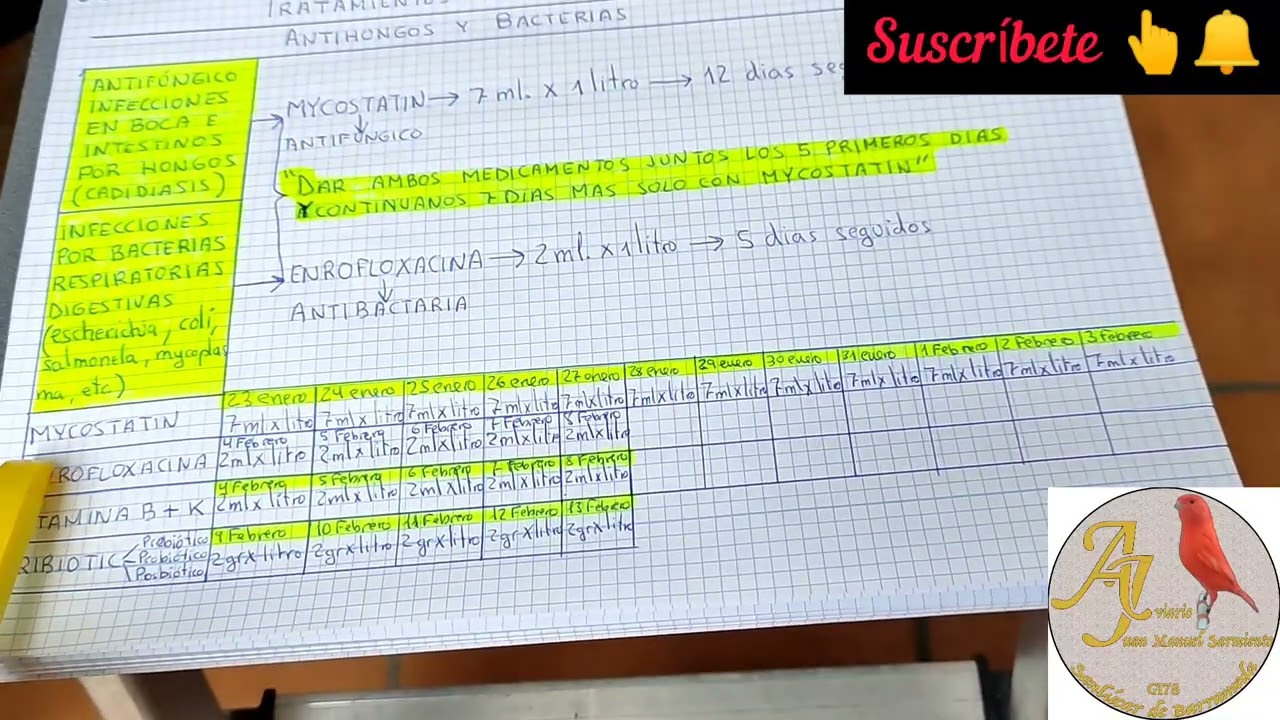 TRATAMIENTOS
ANTIHONGOS Y BACTERIAS
Suscríbete
ANTIFÚNGICO
INFECCIONES
EN BOCA E
INTESTINOS
POR HONGOS
(CADIDIASIS)
MYCOSTATIN → 7 ml. x 1 litro → 12 dias se
ANTIFÚNGICO
"DAR AMBOS MEDICAMENTOS JUNTOS LOS 5 PRIMEROS DIAS
Y CONTINUANOS 7 DIAS MAS SOLO CON MYCOSTATIN"
INFECCIONES
POR BACTERIAS
RESPIRATORIAS
DIGESTIVAS
(escherichia, coli,
salmonela, mycoplas
ma, etc)
ENROFLOXACINA → 2 ml. x 1 litro → 5 dias seguidos
ANTIBACTARIA
23 enero 24 enero 25 enero 26 enero 27 enero 28 enero 29 enero 30 enero 31 enero 1 Febrero 2 Febrero 3 Febrero
MYCOSTATIN 7 ml x litro 7 ml x litro 7 ml x litro 7 ml x litro 7 ml x litro 7 ml x litro 7 ml x litro 7 ml x litro 7 ml x litro 7 ml x litro 7 ml x litro 7 ml x litro
4 Febrero 5 Febrero 6 Febrero 7 Febrero 8 Febrero
ROFLOXACINA 2 ml x litro 2 ml x litro 2 ml x litro 2 ml x litro 2 ml x litro
4 Febrero 5 Febrero 6 Febrero 7 Febrero 8 Febrero
TAMINA B + K 2 ml x litro 2 ml x litro 2 ml x litro 2 ml x litro 2 ml x litro
9 Febrero 10 Febrero 11 Febrero 12 Febrero 13 Febrero
RIBIOTIC Prebiótico Probiótico Posbiótico 2 gr x litro 2 gr x litro 2 gr x litro 2 gr x litro 2 gr x litro
AJ
viario
uan Manuel Sarmiento
GI78
Sanlúcar de Barrameda